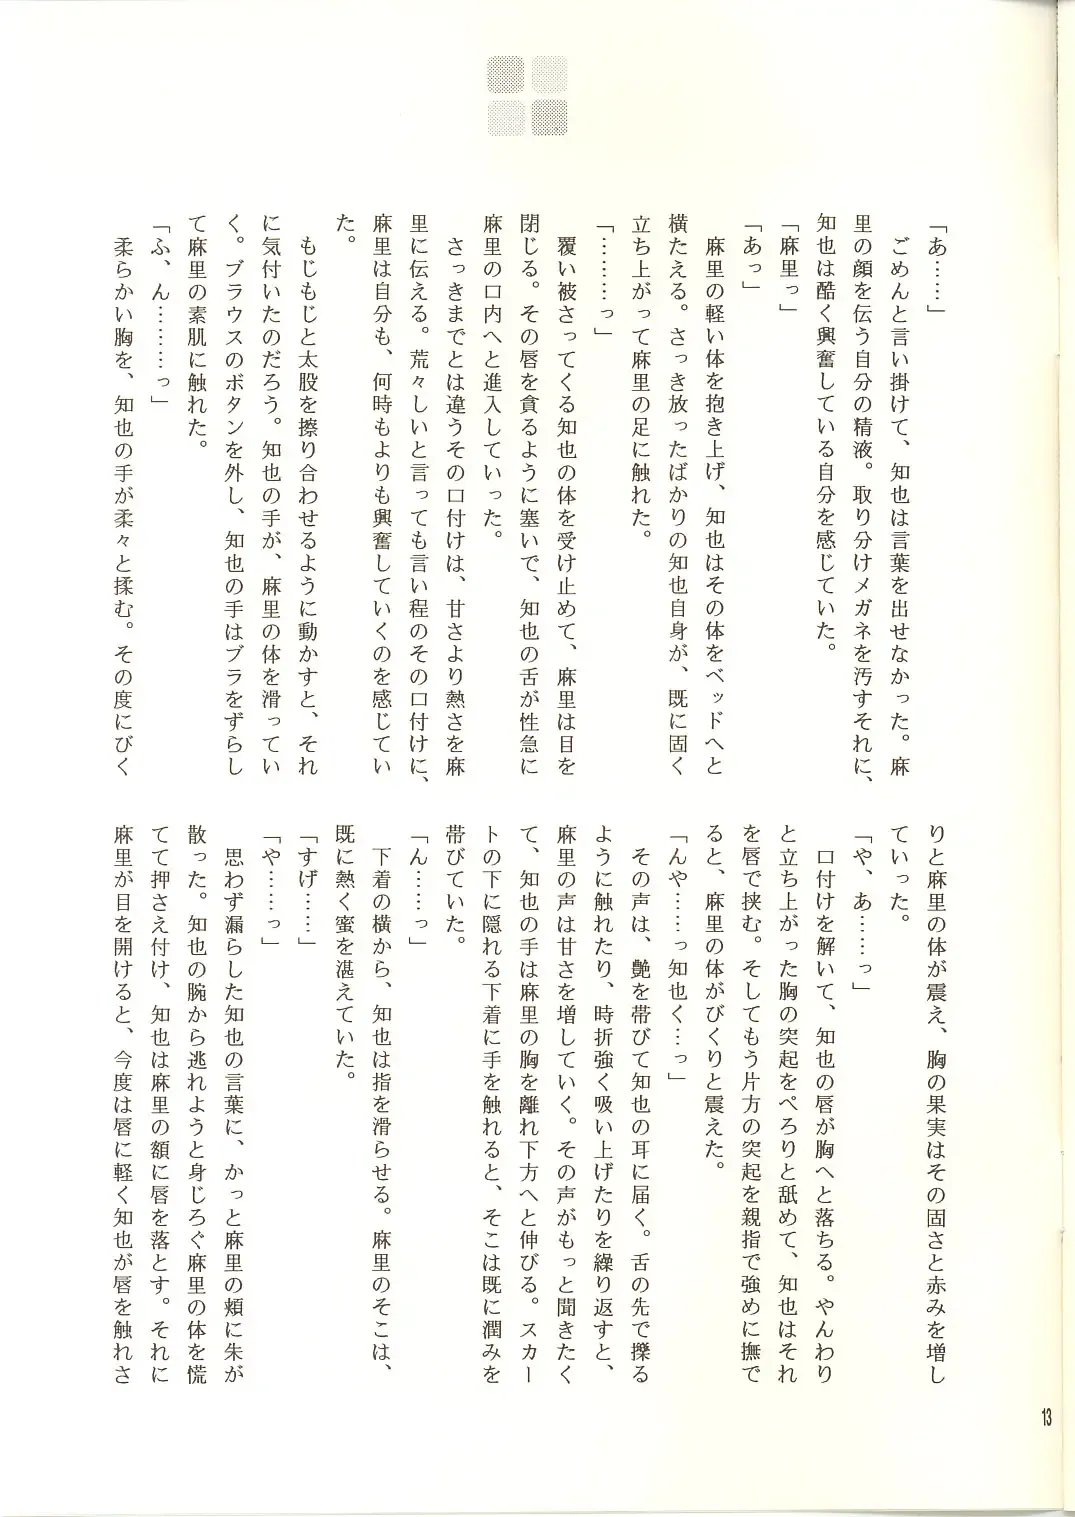 「あ……」
　ごめんと言い掛けて、知也は言葉を出せなかった。麻
里の顔を伝う自分の精液。取り分けメガネを汚すそれに、
知也は酷く興奮している自分を感じていた。
「麻里っ」
「あっ」
　麻里の軽い体を抱き上げ、知也はその体をベッドへと
横たえる。さっき放ったばかりの知也自身が、既に固く
立ち上がって麻里の足に触れた。
「…………っ」
　覆い被さってくる知也の体を受け止めて、麻里は目を
閉じる。その唇を貪るように塞いで、知也の舌が性急に
麻里の口内へと進入していった。
　さっきまでとは違うその口付けは、甘さより熱さを麻
里に伝える。荒々しいと言っても言い程のその口付けに、
麻里は自分も、何時もよりも興奮していくのを感じてい
た。
　もじもじと太股を擦り合わせるように動かすと、それ
に気付いたのだろう。知也の手が、麻里の体を滑ってい
く。ブラウスのボタンを外し、知也の手はブラをずらし
て麻里の素肌に触れた。
「ふ、ん…………っ」
　柔らかい胸を、知也の手が柔々と揉む。その度にびく
りと麻里の体が震え、胸の果実はその固さと赤みを増し
ていった。
「や、あ……っ」
　口付けを解いて、知也の唇が胸へと落ちる。やんわり
と立ち上がった胸の突起をぺろりと舐めて、知也はそれ
を唇で挟む。そしてもう片方の突起を親指で強めに撫で
ると、麻里の体がびくりと震えた。
「んや……っ知也く…っ」
　その声は、艶を帯びて知也の耳に届く。舌の先で擽る
ように触れたり、時折強く吸い上げたりを繰り返すと、
麻里の声は甘さを増していく。その声がもっと聞きたく
て、知也の手は麻里の胸を離れ下方へと伸びる。スカー
トの下に隠れる下着に手を触れると、そこは既に潤みを
帯びていた。
「ん……っ」
　下着の横から、知也は指を滑らせる。麻里のそこは、
既に熱く蜜を湛えていた。
「すげ……」
「や……っ」
　思わず漏らした知也の言葉に、かっと麻里の頬に朱が
散った。知也の腕から逃れようと身じろぐ麻里の体を慌
てて押さえ付け、知也は麻里の額に唇を落とす。それに
麻里が目を開けると、今度は唇に軽く知也が唇を触れさ
13